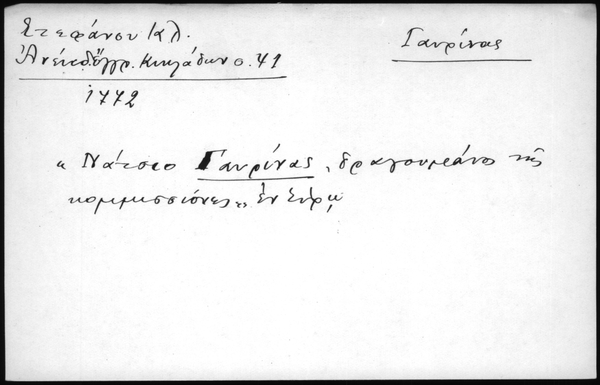 Στεφάνου Κλ.
Γαυρίνας
Ἀνέκδ. ἔγγρ. Κυκλάδων σ. 41
1772
« Νάτσιο Γαυρίνας, δραγουμάνο τῆς
κομμισσιόνες», ἐν Σύρῳ